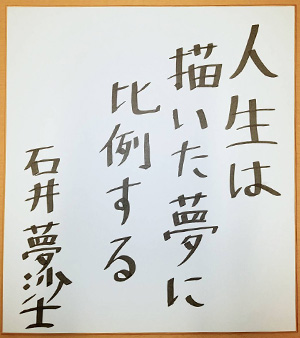 人生は
描いた夢に
比例する
石井夢沙士